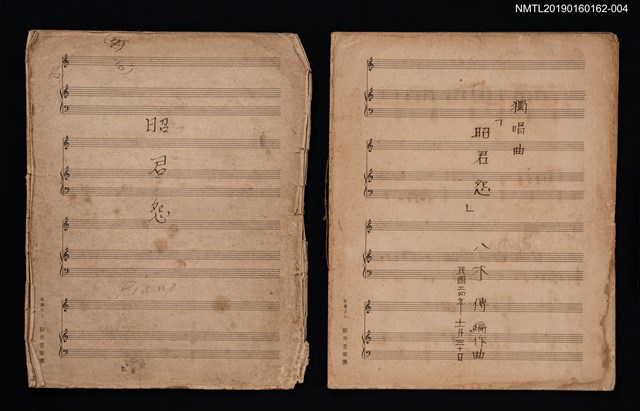 NMTL20190160162-004
昭君怨
Piano
獨唱曲
「昭君怨」
八木傳編作曲
民國三四年 十一月三十日